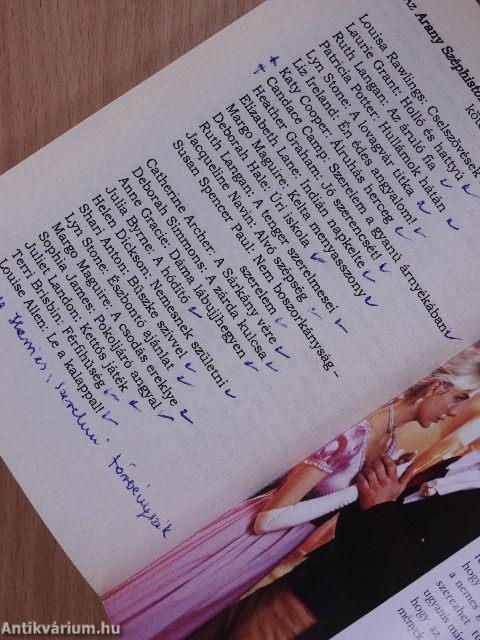 az Arany Széphistó
köt
Louisa Rawlings: Cselszövések
Laurie Grant: Holló és hattyú
Ruth Langan: Az áruló fia
Patricia Potter: Hullámok hátán
Lyn Stone: A lovagvár titka
Liz Ireland: Én édes angyalom!
Katy Cooper: Áruhás herceg
Candace Camp: Szerelem a gyanú árnyékában
Heather Graham: Jó szerencsét!
Elizabeth Lane: Indián napkelte
Margo Maguire: Kelta menyasszony
Deborah Hale: Úri iskola
Ruth Langan: A tenger szerelmesei
Jacqueline Navin: Alvó szépség
Susan Spencer Paul: Nem boszorkányság –
szerelem
Catherine Archer: A Sárkány vére
Deborah Simmons: A zárda kulcsa
Anne Gracie: Dáma lábujjhegyen
Julia Byrne: A hódító
Helen Dickson: Nemesnek születni
Shari Anton: Büszke szívvel
Lyn Stone: Eszbontó ajánlat
Margo Maguire: A csodás ereklye
Sophia James: Pokoljáró angyal
Juliet Landon: Kettős játék
Terri Brisbin: Férfihűség
Louise Allen: Le a kalappal!
szerelem
törvényszék
hogy
a nemes
szerezhet
ugyanis
hogy az
mények
Antikvárium.hu